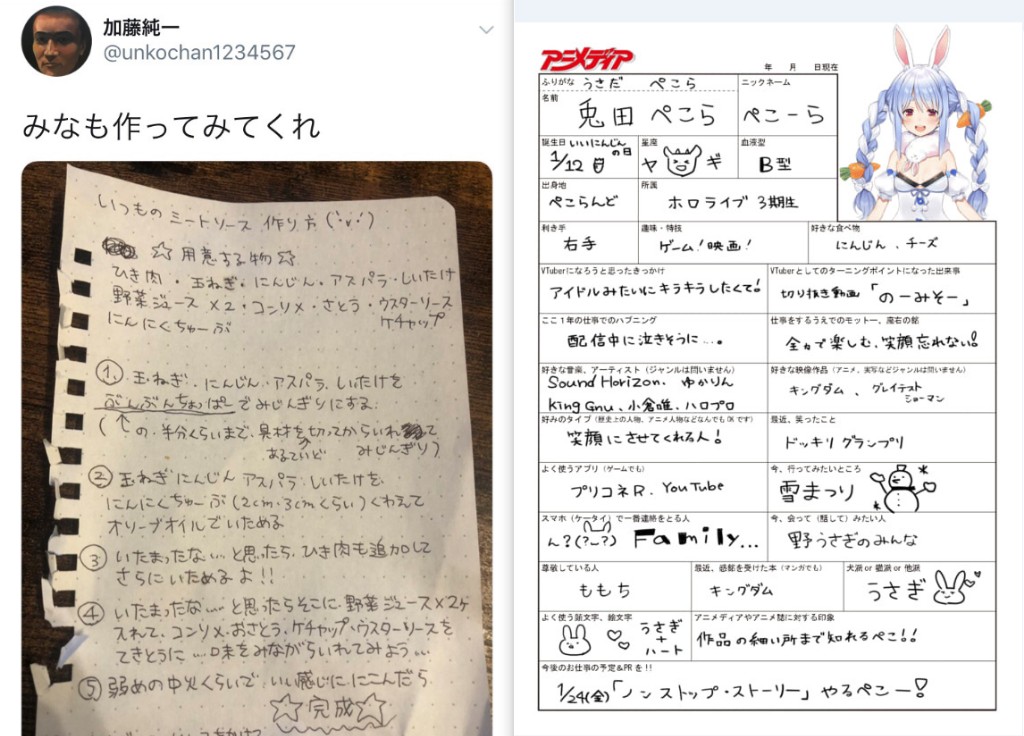 加藤純一
@unkochan1234567
みなも作ってみてくれ
いつもの ミートソース 作り方
☆ 用意する物 ☆
ひき肉・玉ねぎ・にんじん・アスパラ・しいたけ
野菜ジュース×2・コンソメ・さとう・ウスターソース
にんにくちゅーぶ
ケチャップ
① 玉ねぎ・にんじん・アスパラ・しいたけを
ぶんぶんちょっぱーでみじんぎりにする
(↑の半分くらいまで、具材を切ってからいれて
あるていど
みじんぎり)
② 玉ねぎ にんじん アスパラ しいたけを
にんにくちゅーぶ(2cm・3cmくらい)くわえて
オリーブオイルでいためる
③ いたまったな…と思ったら、ひき肉も追加して
さらにいためるよ!!
④ いたまったな…と思ったらそこに野菜ジュース×2ヶ
入れて、コンソメ・おさとう・ケチャップ・ウスターソースを
てきとうに…味をみながらいれてみよう…
⑤ 弱めの中火くらいで、いい感じににこんだら
☆完成☆
アニメディア
年 月 日現在
ふりがな うさだ ぺこら
ニックネーム
名前 兎田 ぺこら
ぺこーら
誕生日 いいにんじんの日
1/12日
星座
ヤギ
血液型
B型
出身地
ぺこらんど
所属
ホロライブ 3期生
利き手
右手
趣味・特技
ゲーム!映画!
好きな食べ物
にんじん、チーズ
VTuberになろうと思ったきっかけ
アイドルみたいにキラキラしたくて!
VTuberとしてのターニングポイントになった出来事
切り抜き動画「のーみそー」
ここ1年の仕事でのハプニング
配信中に泣きそうに…。
仕事をするうえでのモットー、座右の銘
全力で楽しむ、笑顔忘れない!
好きな音楽、アーティスト(ジャンルは問いません)
Sound Horizon、ゆかりん
King Gnu、小倉唯、ハロプロ
好きな映像作品(アニメ、実写などジャンルは問いません)
キングダム、グレイテストショーマン
好みのタイプ(歴史上の人物、アニメ人物などなんでもOKです)
笑顔にさせてくれる人!
最近、笑ったこと
ドッキリグランプリ
よく使うアプリ(ゲームでも)
プリコネR、YouTube
今、行ってみたいところ
雪まつり
スマホ(ケータイ)で一番連絡をとる人
ん?(?_?) Family...
今、会って(話して)みたい人
野うさぎのみんな
尊敬している人
ももち
最近、感銘を受けた本(マンガでも)
キングダム
犬派 or 猫派 or 他派
うさぎ
よく使う顔文字、絵文字
うさぎ
+
ハート
アニメディアやアニメ誌に対する印象
作品の細い所まで知れるぺこ!!
今後のお仕事の予定&PRを!!
1/24(金)「ノンストップ・ストーリー」やるぺこー!